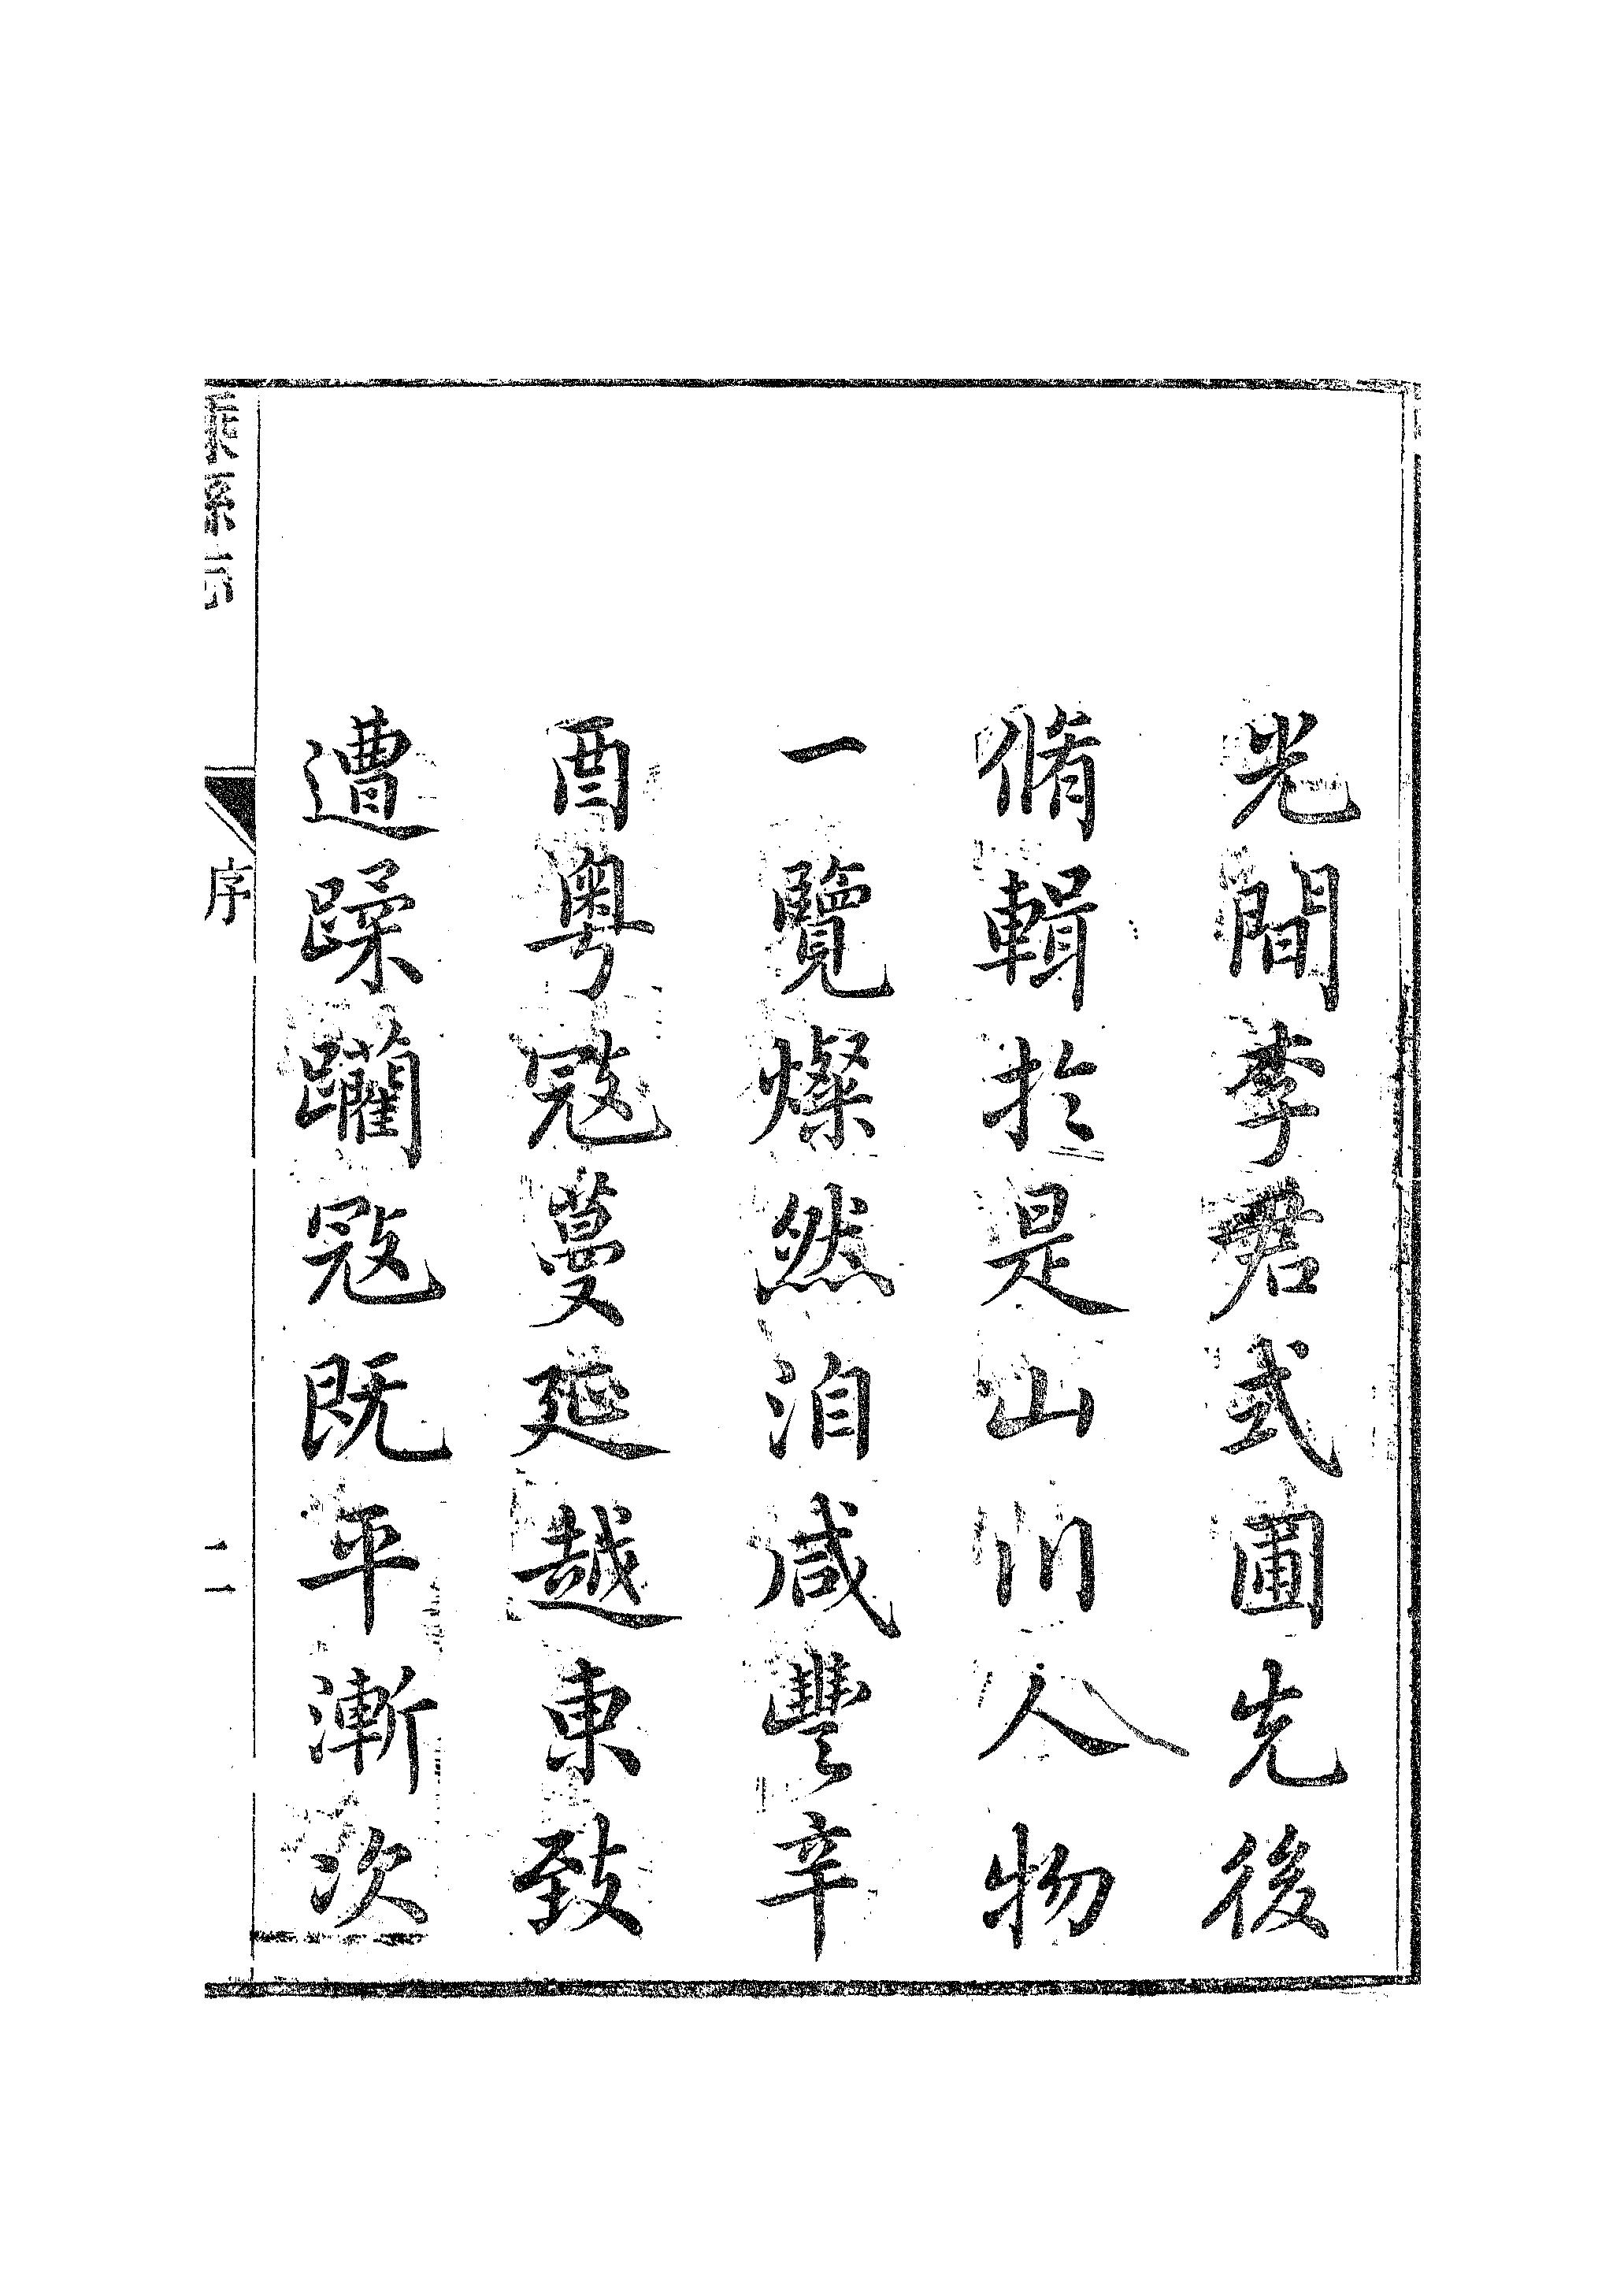 光間李君式圃先後
脩輯於是山川人物
一覽燦然洎咸豐辛
酉粵寇蔓延越東致
遭蹂躪寇既平漸次
序
二